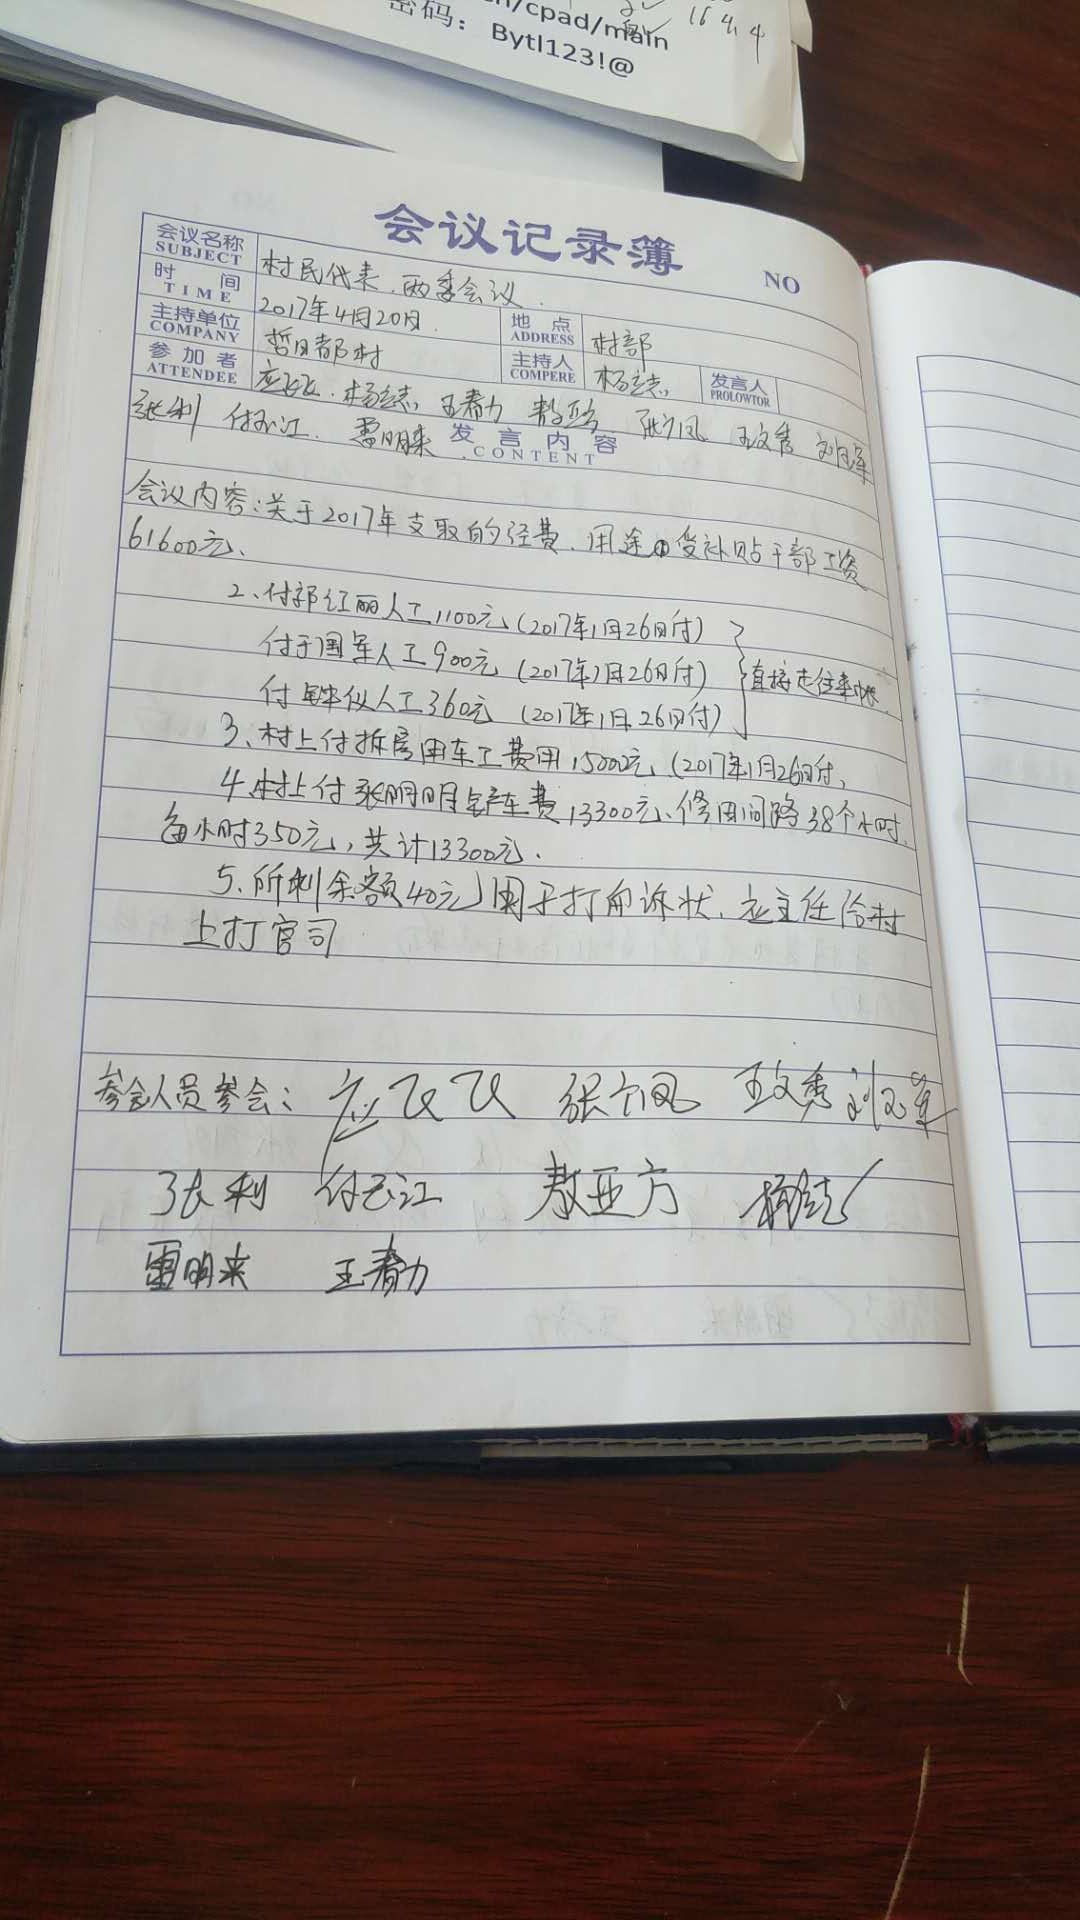 n/cpad/main
16 4.4
密码：Bytl123!@
会议记录簿
NO
会议名称 村民代表、两委会议
SUBJECT
时间 2017年4月20日
TIME
地点 村部
ADDRESS
主持单位 哲日都村
COMPANY
主持人 杨志
COMPERE
发言人
PROLOWTOR
参加者 应飞飞、杨志、王春力 敖亚方 张凤 王文秀
ATTENDEE
张利 付江、雷明来
发言内容
CONTENT
会议内容：关于2017年支取的经费、用途①发补贴干部工资
61600元、
2、付郭红丽人工1100元（2017年1月26日付）
付于国军人工900元（2017年1月26日付）
付人工360元（2017年1月26日付）
直接走往来帐
3、村上付拆房用车工费用15000元（2017年1月26日付、
4、村上付张明明铲车费13300元、修田间路38个小时、
每小时350元，共计13300元.
5、所剩余额40元用于打诉状、应主任给村
上打官司
参会人员参会：应飞飞 张凤 王文秀
张利 付江 敖亚方 杨志
雷明来 王春力